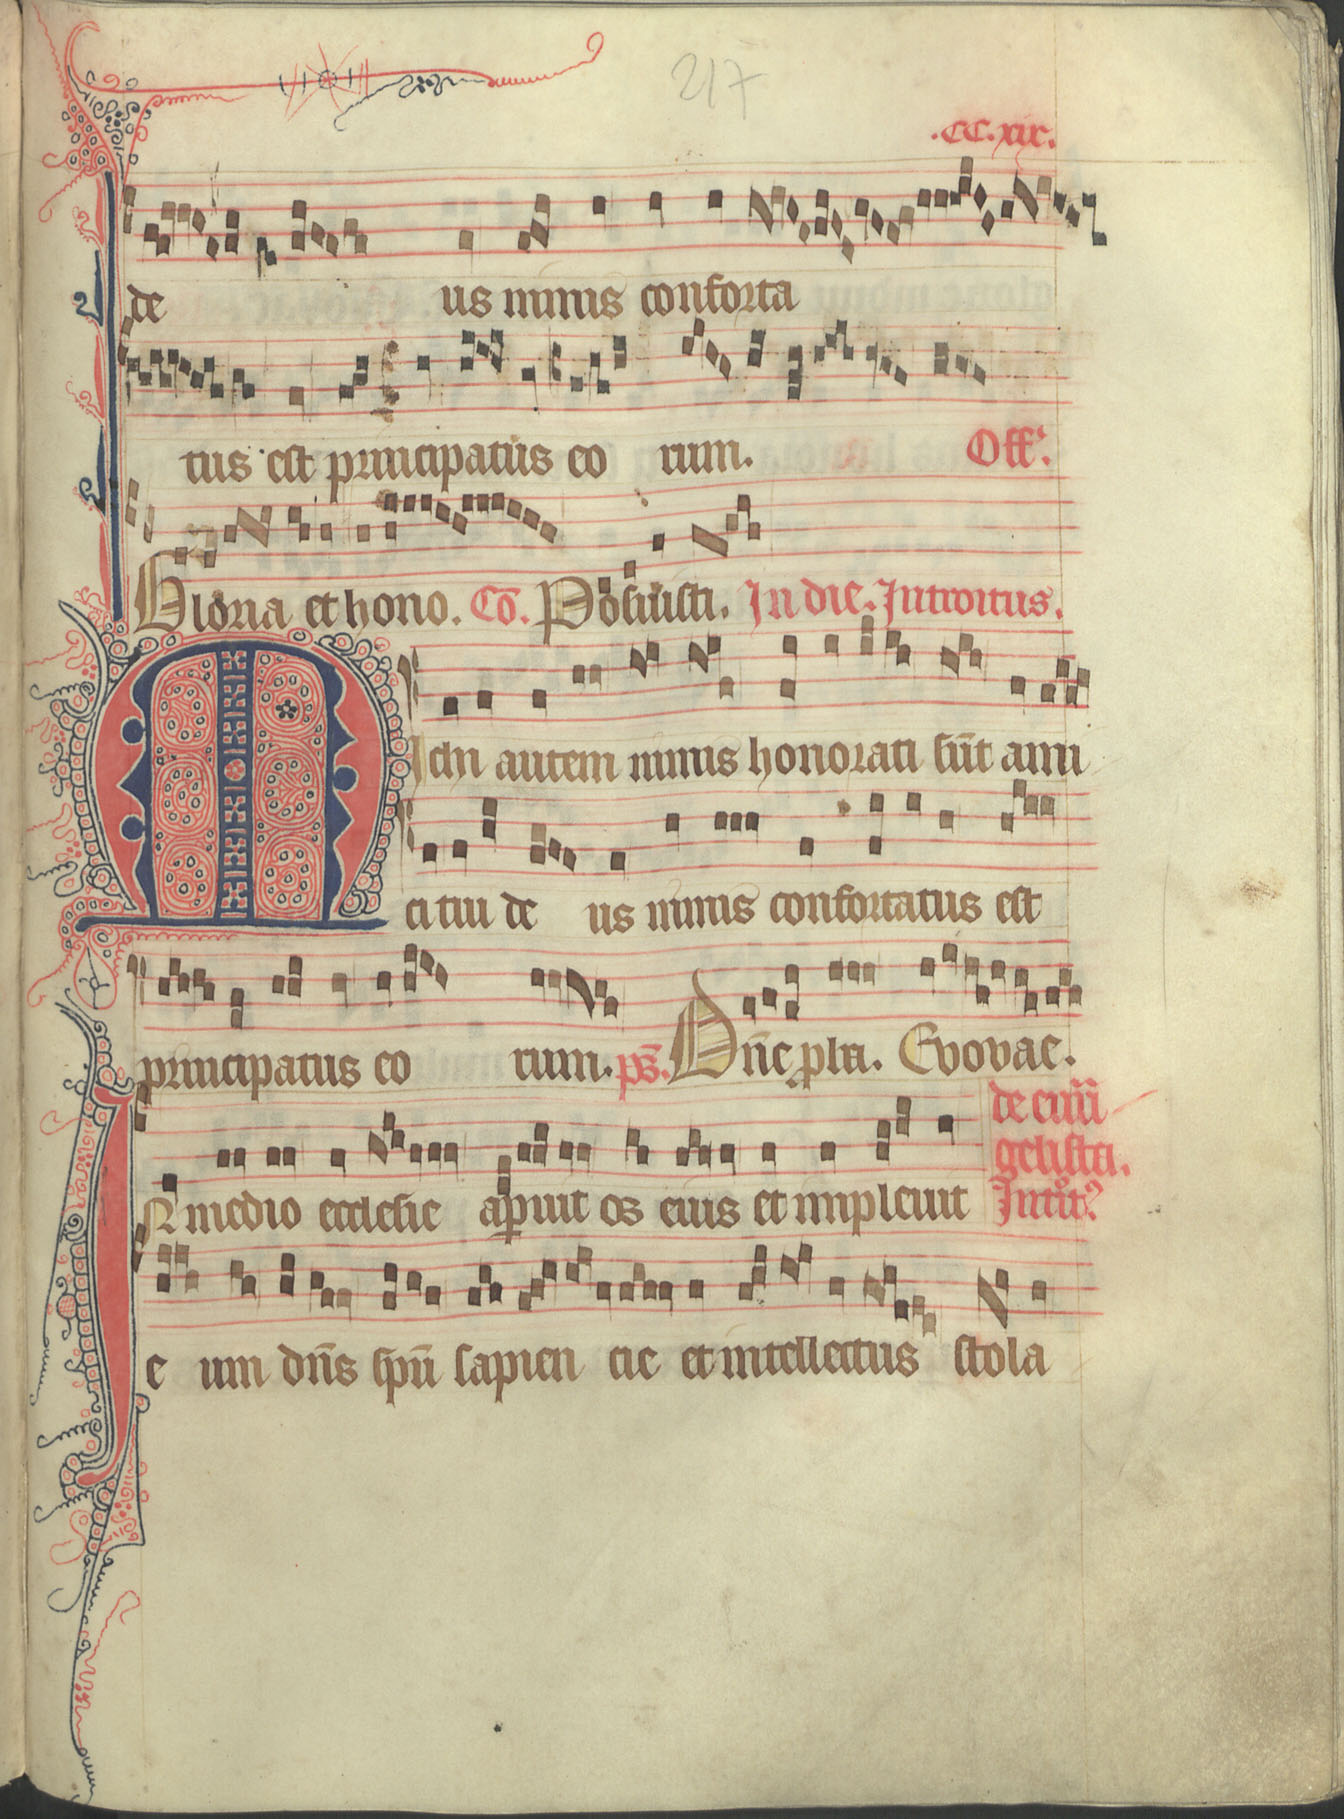 217
.CC.xix.
de us nimis conforta
tus est principatus eo rum. Off.
Gloria et hono. Cō. Posuisti. In die. Introitus.
Michi autem nimis honorati sūt ami
ci tui de us nimis confortatus est
principatus eo rum. ps. Dn̄e p̱ba. Evovae.
de euā
gelista.
In medio ecclesie aperuit os eius et impleuit Introit9
e um dn̄s sp̄u sapien cie et intellectus stola